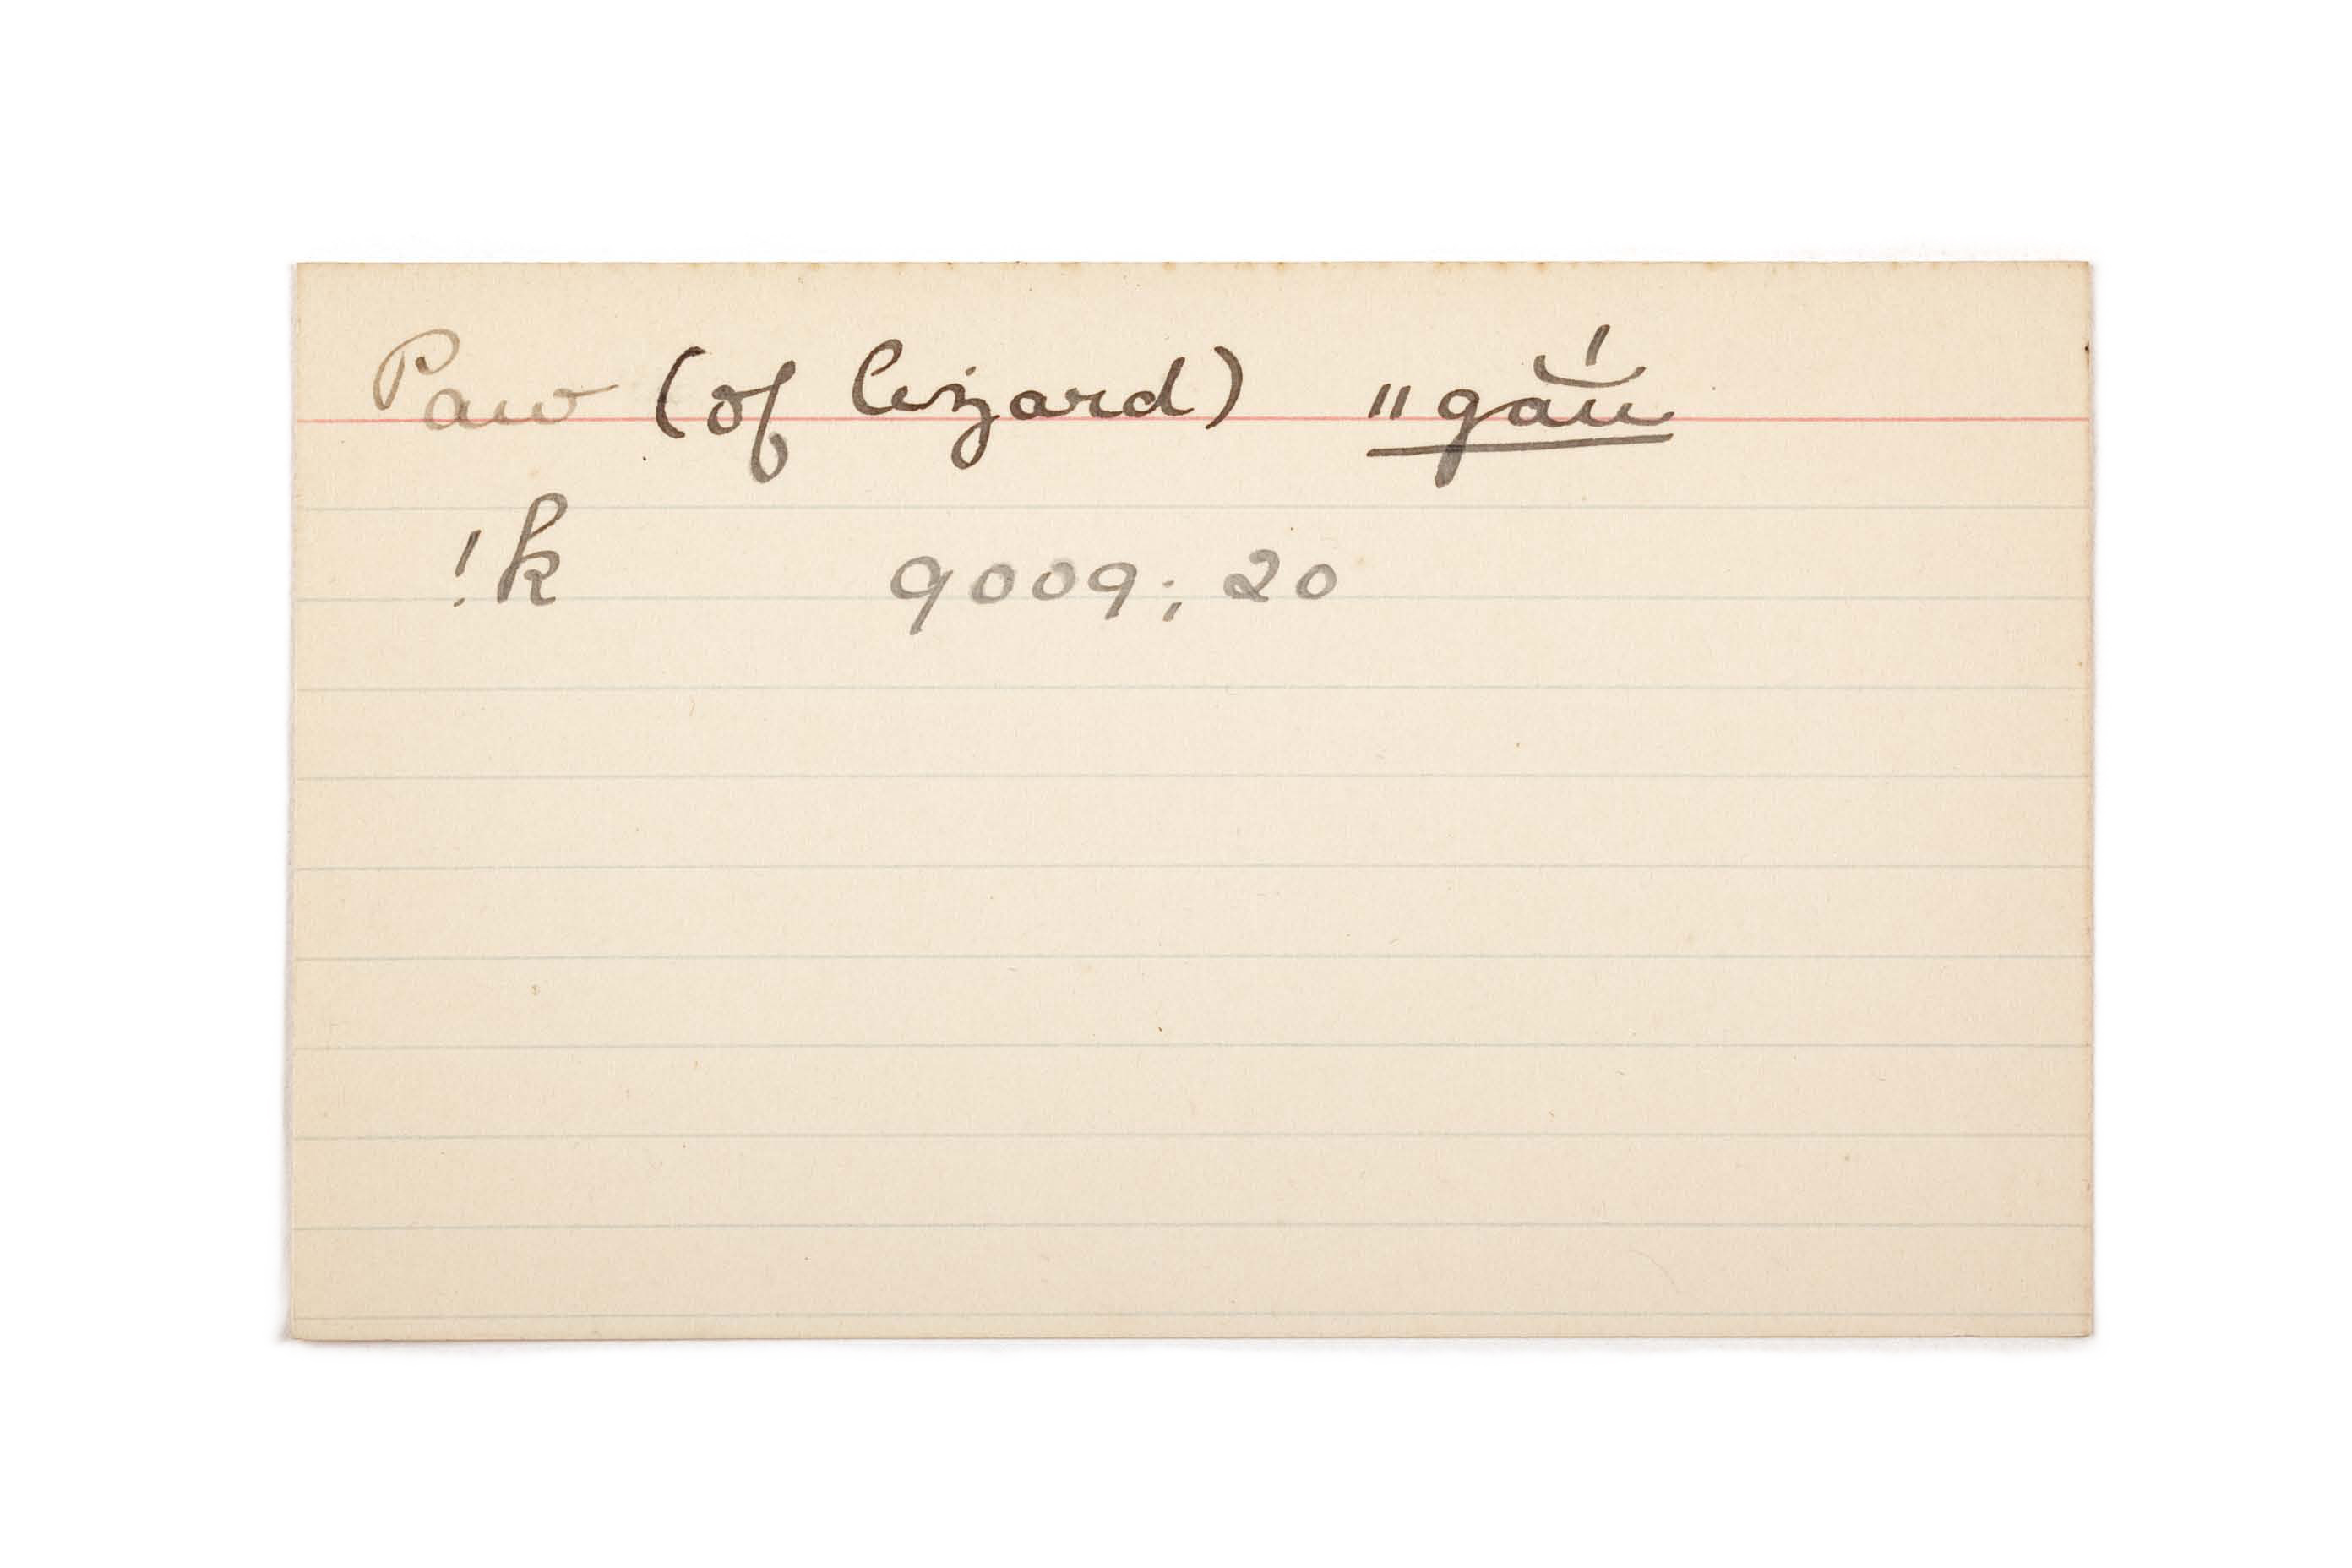 Paw (of lizard) ǁgaú̯
!k 9009; 20